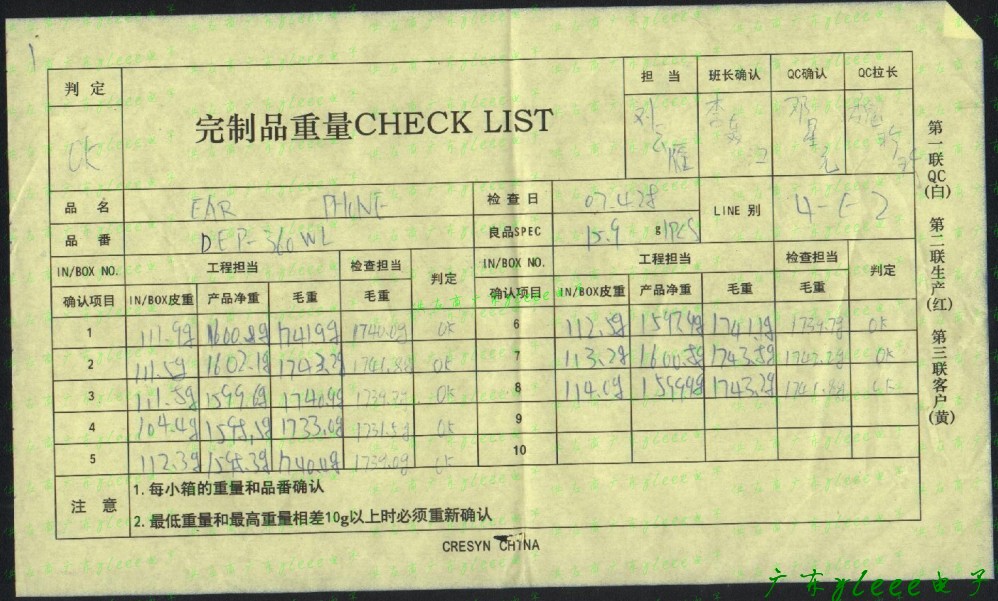 判定 担当 班长确认 QC确认 QC拉长
OK 完制品重量CHECK LIST 刘云雁
品名 EAR PHONE 检查日 07.4.28 LINE 别 4-F-2
品番 DEP-360WL 良品SPEC 15.9 g/PCS
IN/BOX NO. 工程担当 检查担当 判定 IN/BOX NO. 工程担当 检查担当 判定
确认项目 IN/BOX皮重 产品净重 毛重 毛重 确认项目 IN/BOX皮重 产品净重 毛重 毛重
1 111.9g 1741.9g 1740.0g OK 6 112.5g 1739.7g OK
2 111.5g 1602.1g OK 7 113.2g 1600.5g 1743.5g OK
3 111.5g OK 8 114.0g 1743.2g OK
4 104.4g 1733.0g 1731.5g OK 9
5 112.3g 1739.0g OK 10
注意 1. 每小箱的重量和品番确认
2. 最低重量和最高重量相差10g以上时必须重新确认
CRESYN CHINA
第一联QC(白) 第二联生产(红) 第三联客户(黄)
广东gleee电子